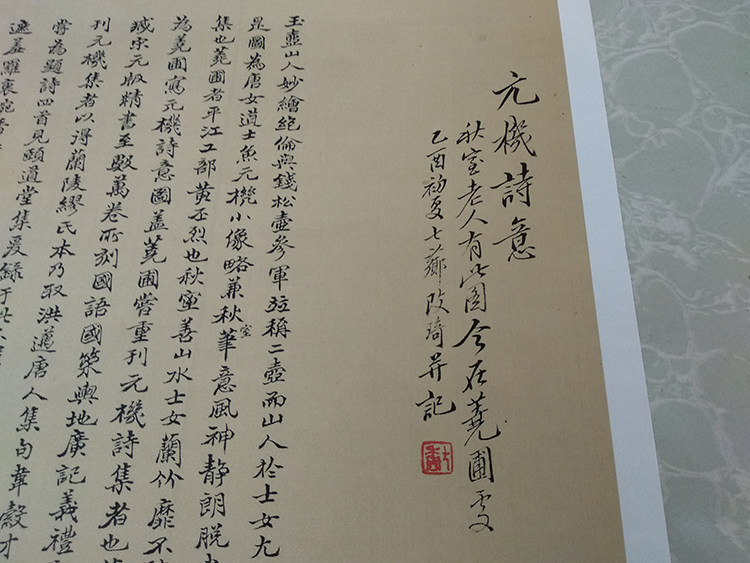 元機詩意
秋室老人有此圖今在蕘圃處
乙酉初夏七薌改琦并記
玉壺山人妙繪絕倫與錢松壺參軍竝稱二壺而山人於士女尤
是圖為唐女道士魚元機小像略兼秋室筆意風神靜朗脫
集也蕘圃者平江工部黃丕烈也秋室善山水士女蘭竹靡不
為蕘圃寫元機詩意圖蓋蕘圃嘗重刊元機詩集者也
臧宋元版精書至數萬卷所刻國語國策輿地廣記義禮
刊元機集者以得蘭陵繆氏本乃取洪邁唐人集句韋縠才
嘗為題詩四首見頤道堂集爰錄于
遮羞羅袖